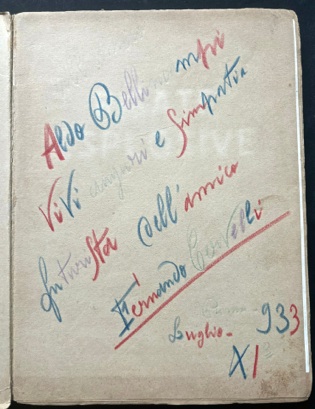 Aldo Bellini mpi
ViVi auguri e Simpatia
futurista dell'amico
Fernando Cervelli
Luglio - 933
XI